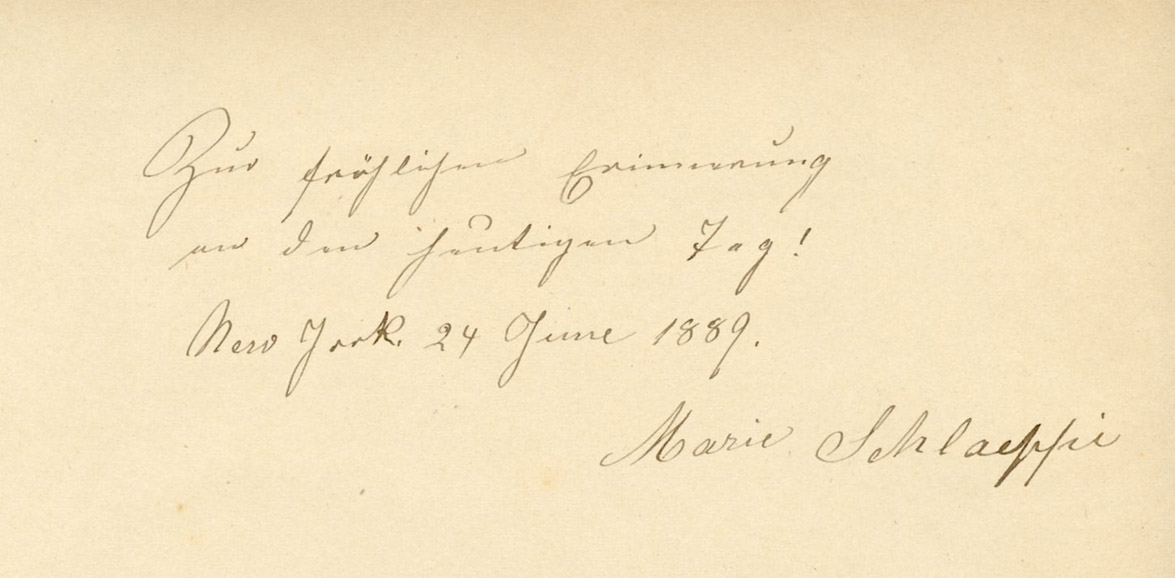 Zur fröhlichen Erinnerung
an den heutigen Tag!
New York. 24 June 1889.
Marie Schlaeppi